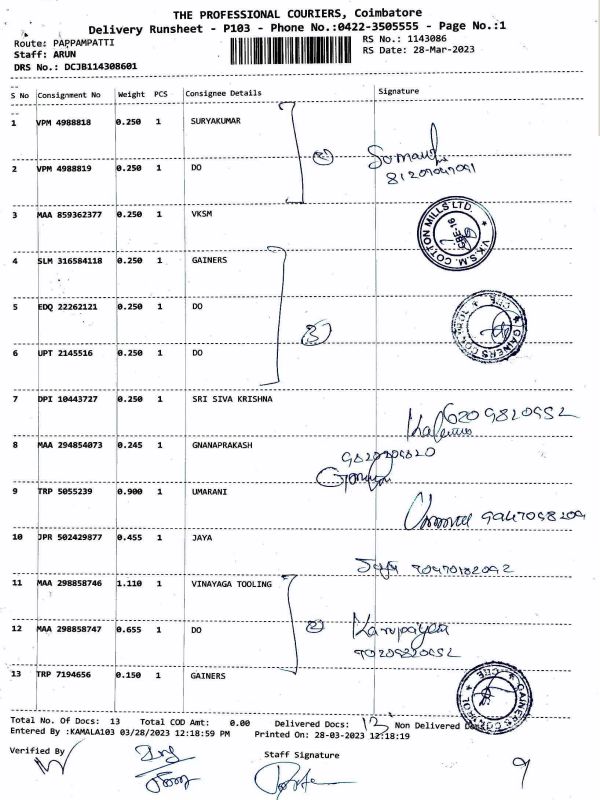 THE PROFESSIONAL COURIERS, Coimbatore
Delivery Runsheet - P103 - Phone No.:0422-3505555 - Page No.:1
Route: PAPPAMPATTI
RS No.: 1143086
Staff: ARUN
RS Date: 28-Mar-2023
DRS No.: DCJB114308601
S No Consignment No Weight PCS Consignee Details Signature
1 VPM 4988818 0.250 1 SURYAKUMAR
2 VPM 4988819 0.250 1 DO
3 MAA 859362377 0.250 1 VKSM
V.K.S.M. COTTON MILLS LTD.
4 SLM 316584118 0.250 1 GAINERS
5 EDQ 22262121 0.250 1 DO
GAINERS CONTROL CBE
6 UPT 2145516 0.250 1 DO
7 DPI 10443727 0.250 1 SRI SIVA KRISHNA
8 MAA 294854073 0.245 1 GNANAPRAKASH
9 TRP 5055239 0.900 1 UMARANI
10 JPR 502429877 0.455 1 JAYA
11 MAA 298858746 1.110 1 VINAYAGA TOOLING
12 MAA 298858747 0.655 1 DO
13 TRP 7194656 0.150 1 GAINERS
GAINERS CONTROL CBE
Total No. Of Docs: 13 Total COD Amt: 0.00 Delivered Docs: 13 Non Delivered
Entered By :KAMALA103 03/28/2023 12:18:59 PM Printed On: 28-03-2023 12:18:19
Verified By
Staff Signature